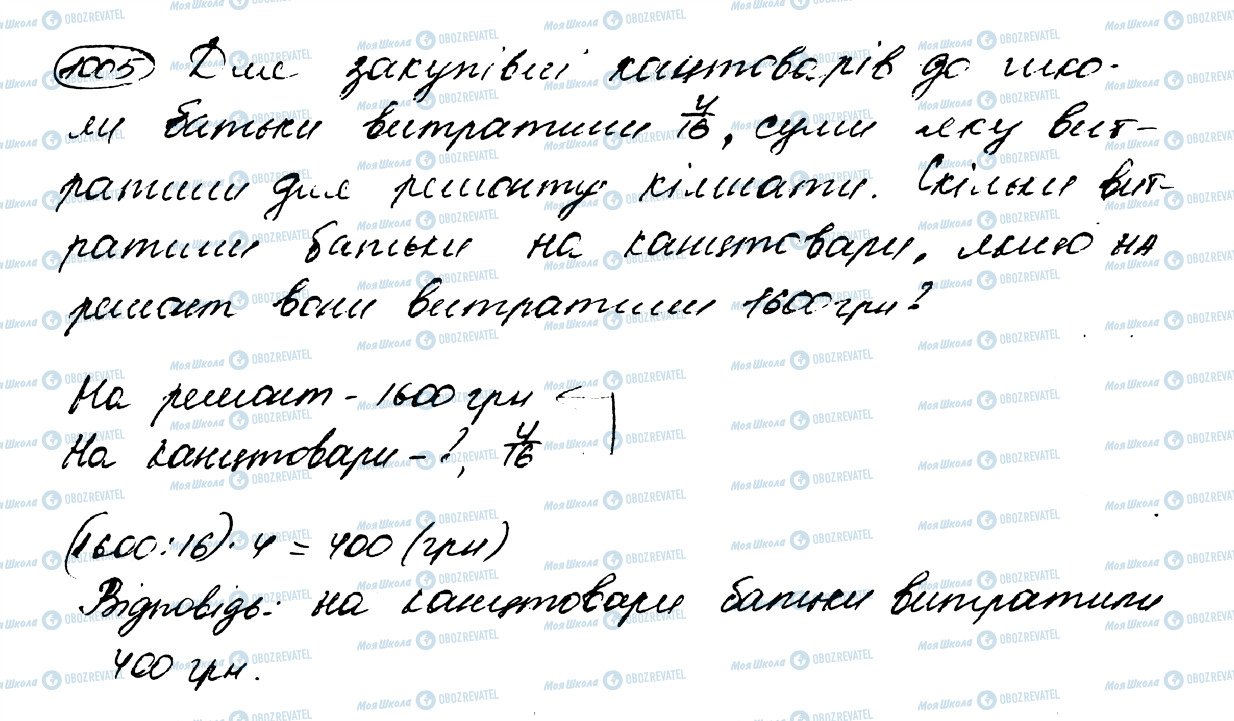 1005 Для закупівлі канцтоварів до шко-
ли батьки витратили 4/16, суми яку вит-
ратили для ремонту кімнати. Скільки вит-
ратили батьки на канцтовари, якщо на
ремонт вони витратили 1600 грн?
На ремонт - 1600 грн
На канцтовари - ?, 4/16
(1600:16)·4 = 400 (грн)
Відповідь: на канцтовари батьки витратили
400 грн.